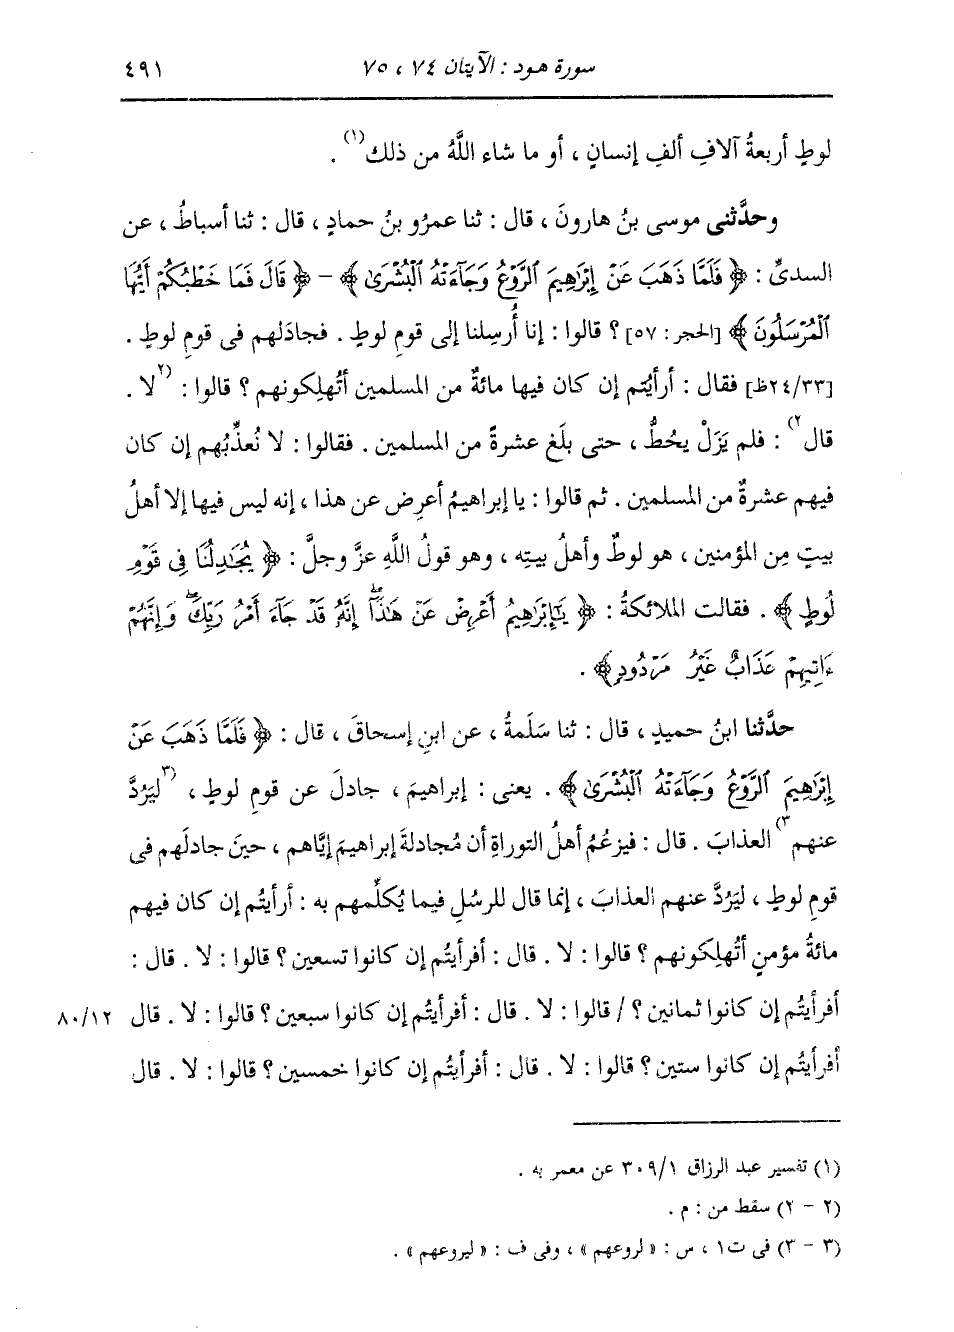 سورة هود : الآيتان ٧٤ ، ٧٥ ٤٩١
لوطٍ أربعةُ آلافِ ألفِ إنسانٍ ، أو ما شاء اللَّهُ من ذلك(١) .
وحدَّثنى موسى بنُ هارونَ ، قال : ثنا عمرُو بنُ حمادٍ ، قال : ثنا أسباطُ ، عن
السدىِّ : ﴿ فَلَمَّا ذَهَبَ عَنْ إِبْرَٰهِيمَ ٱلرَّوْعُ وَجَآءَتْهُ ٱلْبُشْرَىٰ ﴾ - ﴿ قَالَ فَمَا خَطْبُكُمْ أَيُّهَا
ٱلْمُرْسَلُونَ ﴾ [الحجر : ٥٧] ؟ قالوا : إنا أُرسِلنا إلى قومِ لوطٍ . فجادَلهم فى قومِ لوطٍ .
[٢٤/٣٣ظ] فقال : أرأيْتم إن كان فيها مائةٌ من المسلمين أتُهلِكونهم ؟ قالوا : (٢لا .
قال٢) : فلم يَزَلْ يحُطُّ ، حتى بلَغ عشرةً من المسلمين . فقالوا : لا نُعذِّبُهم إن كان
فيهم عشرةٌ من المسلمين . ثم قالوا : يا إبراهيمُ أعرِض عن هذا ، إنه ليس فيها إلا أهلُ
بيتٍ مِن المؤمنين ، هو لوطٌ وأهلُ بيتِه ، وهو قولُ اللَّهِ عزَّ وجلَّ : ﴿ يُجَٰدِلُنَا فِى قَوْمِ
لُوطٍ ﴾ . فقالت الملائكةُ : ﴿ يَٰٓإِبْرَٰهِيمُ أَعْرِضْ عَنْ هَٰذَآ إِنَّهُۥ قَدْ جَآءَ أَمْرُ رَبِّكَ وَإِنَّهُمْ
ءَاتِيهِمْ عَذَابٌ غَيْرُ مَرْدُودٍ ﴾ .
حدَّثنا ابنُ حميدٍ ، قال : ثنا سَلَمةُ ، عن ابنِ إسحاقَ ، قال : ﴿ فَلَمَّا ذَهَبَ عَنْ
إِبْرَٰهِيمَ ٱلرَّوْعُ وَجَآءَتْهُ ٱلْبُشْرَىٰ ﴾ . يعنى : إبراهيمَ ، جادلَ عن قومِ لوطٍ ، (٣ليَرُدَّ
عنهم٣) العذابَ . قال : فيزعُمُ أهلُ التوراةِ أن مُجادلةَ إبراهيمَ إيَّاهم ، حينَ جادلَهم فى
قومِ لوطٍ ، ليَرُدَّ عنهم العذابَ ، إنما قال للرسُلِ فيما يُكلِّمهم به : أرأيتُم إن كان فيهم
مائةُ مؤمنٍ أتُهلِكونهم ؟ قالوا : لا . قال : أفرأيتُم إن كانوا تسعين ؟ قالوا : لا . قال :
أفرأيتُم إن كانوا ثمانين ؟ / قالوا : لا . قال : أفرأيتُم إن كانوا سبعين ؟ قالوا : لا . قال ٨٠/١٢
أفرأيتُم إن كانوا ستين ؟ قالوا : لا . قال : أفرأيتُم إن كانوا خمسين ؟ قالوا : لا . قال
(١) تفسير عبد الرزاق ٣٠٩/١ عن معمر به .
(٢ - ٢) سقط من : م .
(٣ - ٣) فى ت١ ، س : « لروعهم » ، وفى ف : « ليروعهم » .